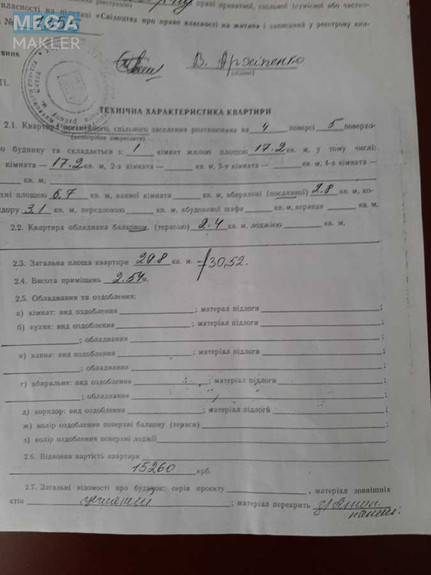 MEGA
MAKLER
власності на підставі «Свідоцтва про право власності на житло» і записаний у реєстрову кни-
В. Архіпенко
(підпис)
ТЕХНІЧНА ХАРАКТЕРИСТИКА КВАРТИРИ
2.1. Квартира посімейного, спільного заселення розташована на 4 поверсі 5 поверхо-
(непотрібне закреслити)
го будинку та складається з: 1 кімнат жилою площею 17.2 кв. м, у тому числі:
кімната — 17.2 кв. м, 2-а кімната — кв. м, 3-у кімната — кв. м, 4-а кімната —
кв. м,
хні площею 6,7 кв. м, ванної кімнати кв. м, вбиральні (поєднаної) 2.8 кв. м, ко-
дору 3.1 кв. м, передпокою кв. м, вбудовані шафи кв. м, веранди кв. м,
2.2. Квартира обладнана балконом, (терасою) 2.4 кв. м, лоджією кв. м.
2.3. Загальна площа квартири 29.8 кв. м. 30,52.
2.4. Висота приміщень 2.54
2.5. Обладнання та оздоблення:
а) кімнат: вид оздоблення ; матеріал підлоги ;
б) кухня: вид оздоблення ; матеріал підлоги
; обладнання ;
в) ванна: вид оздоблення ; матеріал підлоги
; обладнання ;
г) вбиральня: вид оздоблення ; матеріал підлоги
; обладнання ;
д) коридор: вид оздоблення ; матеріал підлоги ;
ж) колір оздоблення поверхні балкону (тераси) ;
з) колір оздоблення поверхні лоджії
2.6. Відновна вартість квартири
15260 крб.
2.7. Загальні відомості про будинок: серія проекту , матеріал зовнішніх
стін ; матеріал перекрить
панелі.